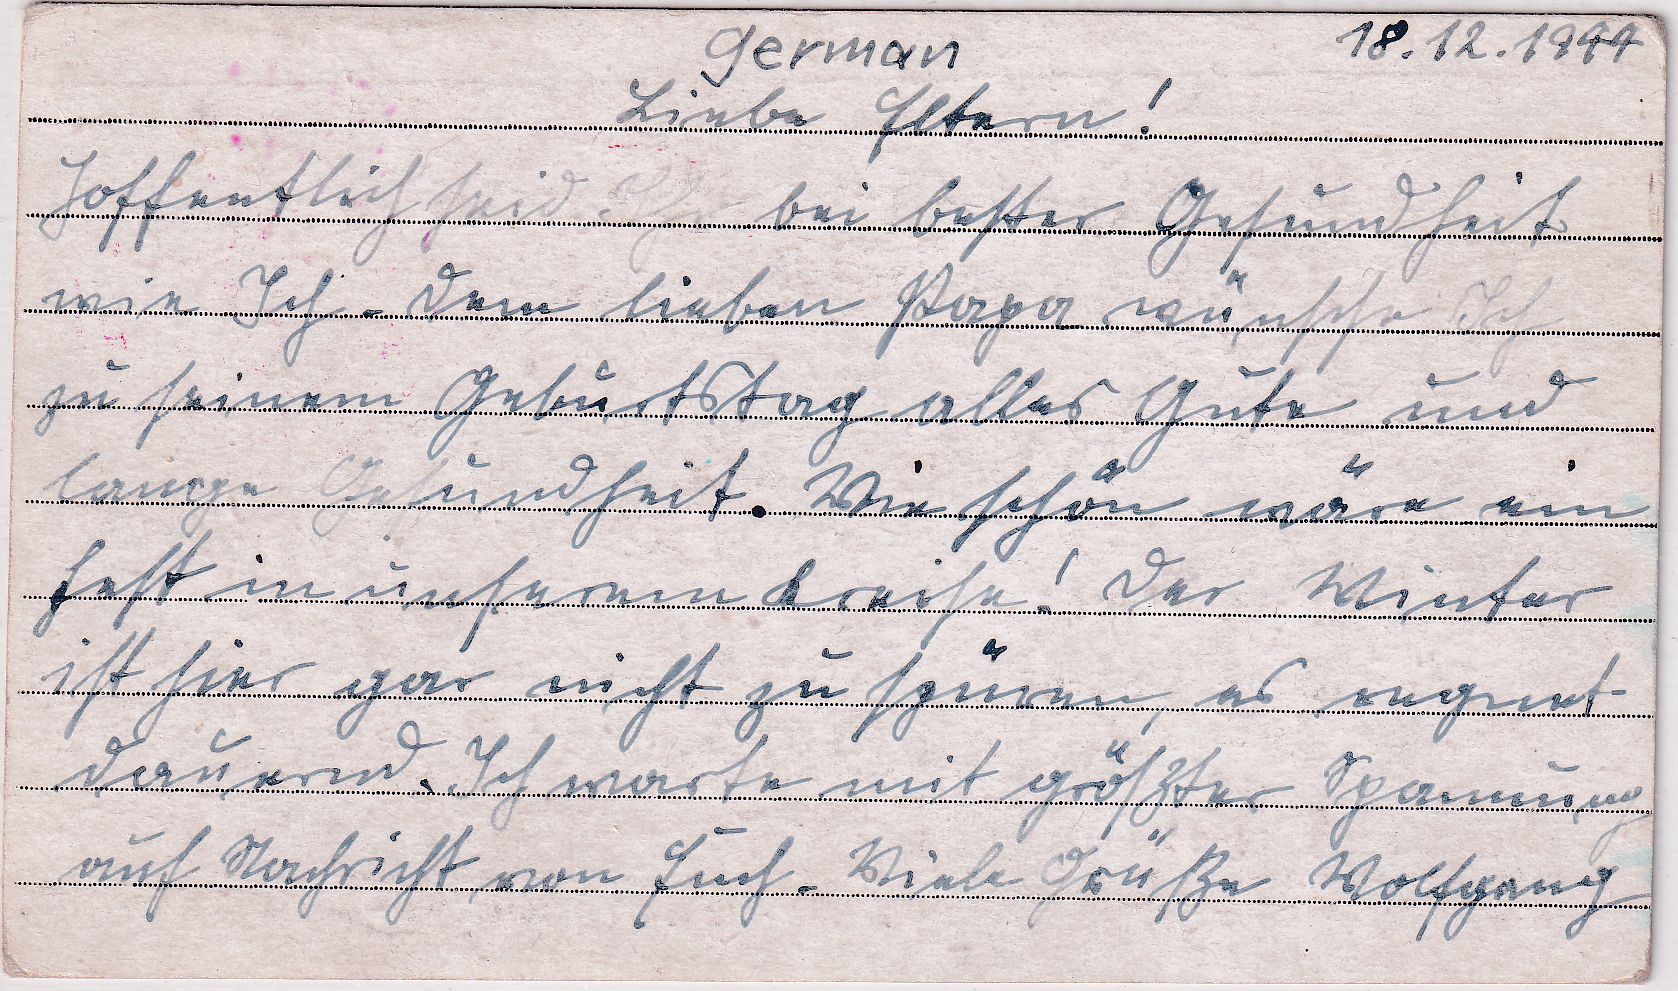 german 18.12.1944
Liebe Eltern!
Hoffentlich seid Ihr bei bester Gesundheit
wie Ich. Dem lieben Papa wünsche Ich
zu seinem Geburtstag alles Gute und
lange Gesundheit. Wie schön wäre ein
Fest in unserem Kreise! Der Winter
ist hier gar nicht zu spüren, es regnet
dauernd. Ich warte mit größter Spannung
auf Nachricht von Euch. Viele Grüße Wolfgang